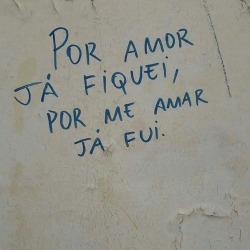 POR AMOR
JÁ FIQUEI,
POR ME AMAR
JÁ FUI.